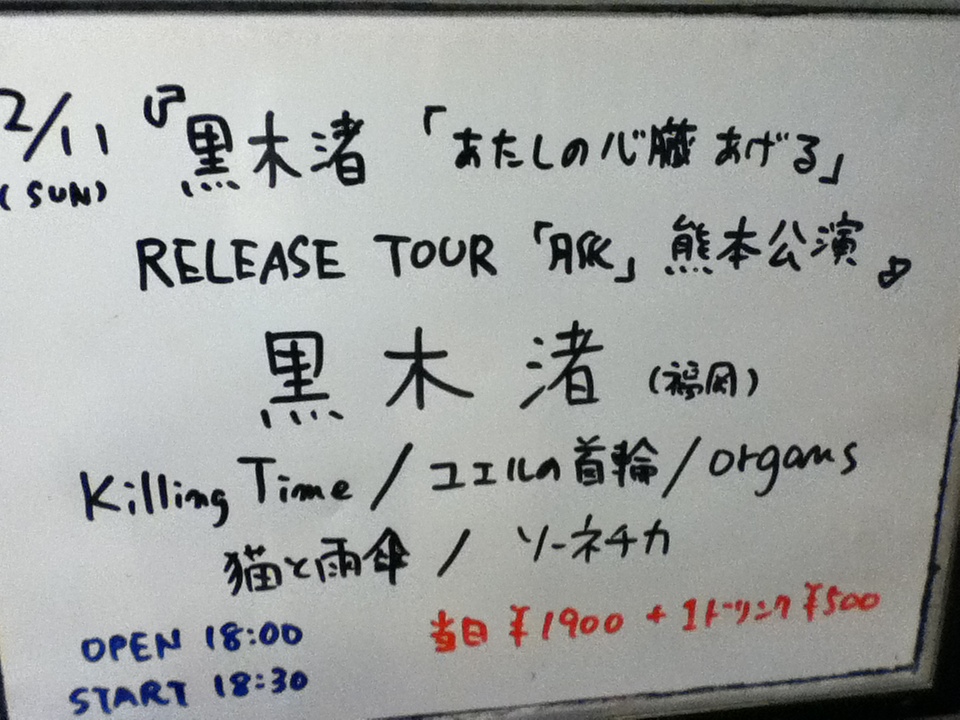 2/11 『黒木渚 「あたしの心臓あげる」
(SUN)
RELEASE TOUR 「脈」熊本公演』
黒木渚 (福岡)
Killing Time / ユエルの首輪 / organs
猫と雨傘 / ソーネチカ
OPEN 18:00
START 18:30
当日 ¥1900 + 1ドリンク ¥500